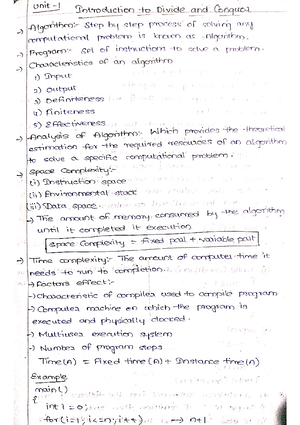 Unit-1 Introduction to Divide and Conquer
→ Algorithm:- Step by step process of solving any
computational problem is known as Algorithm.
→ Program:- Set of instructions to solve a problem.
→ Characteristics of an algorithm
1) Input
2) Output
3) Definiteness
4) Finiteness
5) Effectiveness
→ Analysis of Algorithm: Which provides the theoretical
estimation for the required resources of an algorithm
to solve a specific computational problem.
→ Space Complexity:-
(i) Instruction space
(ii) Environmental stack
(iii) Data space.
→ The amount of memory consumed by the algorithm
until it completed it execution
Space Complexity = Fixed part + Variable part
→ Time complexity:- The amount of computer time it
needs to run to completion.
→ Factors effect:-
→ Characteristic of compiler used to compile program
→ Computer machine on which the program is
executed and physically clocked.
→ Multiuser execution system
→ Number of program steps
Time(n) = Fixed time(n) + Instance time(n)
Example
main()
{
int i=0;
for(i=1; i<=n; i++) → n+1